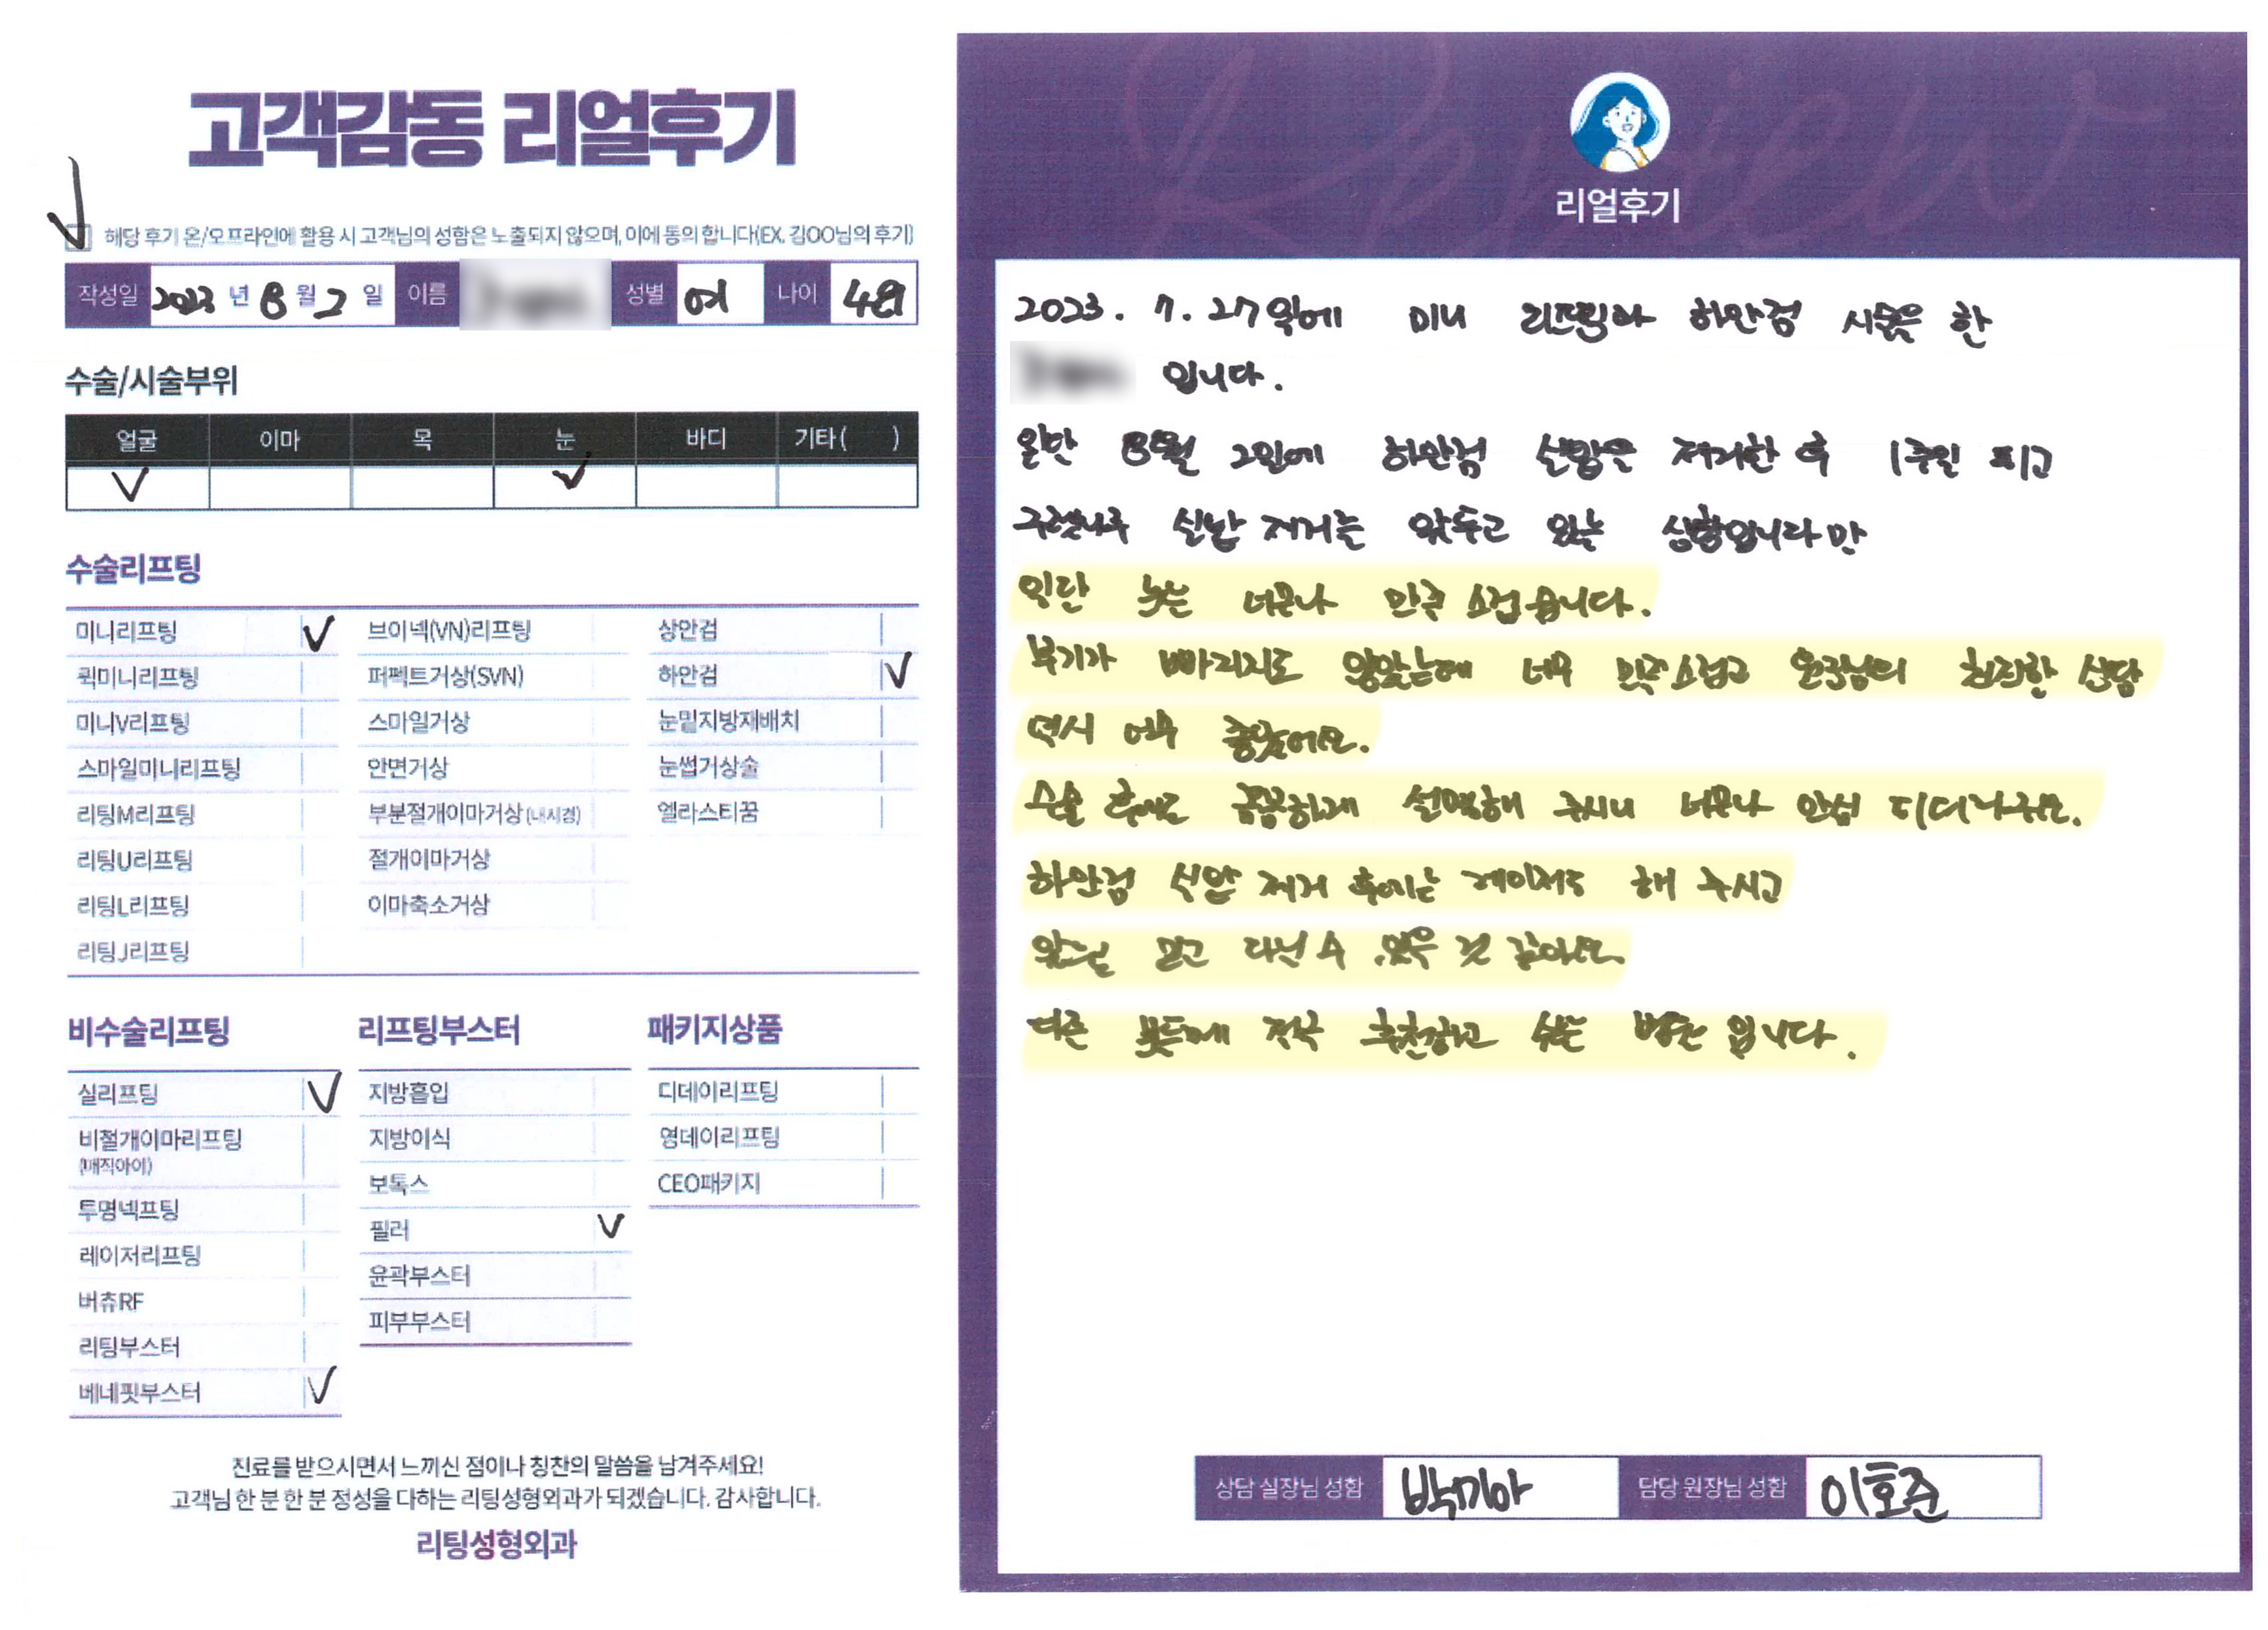 고객감동 리얼후기
해당 후기 온/오프라인에 활용 시 고객님의 성함은 노출되지 않으며, 이에 동의 합니다(EX. 김OO님의 후기)
작성일 2023 년 8 월 2 일 이름 성별 여 나이 48
수술/시술부위
얼굴 이마 목 눈 바디 기타( )
수술리프팅
미니리프팅 브이넥(VN)리프팅 상안검
퀵미니리프팅 퍼펙트거상(SVN) 하안검
미니V리프팅 스마일거상 눈밑지방재배치
스마일미니리프팅 안면거상 눈썹거상술
리팅M리프팅 부분절개이마거상(내시경) 엘라스티꿈
리팅U리프팅 절개이마거상
리팅L리프팅 이마축소거상
리팅J리프팅
비수술리프팅 리프팅부스터 패키지상품
실리프팅 지방흡입 디데이리프팅
비절개이마리프팅 지방이식 영데이리프팅
(매직아이)
보톡스 CEO패키지
투명넥프팅 필러
레이저리프팅 윤곽부스터
버츄RF 피부부스터
리팅부스터
베네핏부스터
진료를 받으시면서 느끼신 점이나 칭찬의 말씀을 남겨주세요!
고객님 한 분 한 분 정성을 다하는 리팅성형외과가 되겠습니다. 감사합니다.
리팅성형외과
Review
리얼후기
2023. 7. 27일에 미니 리프팅과 하안검 시술을 한
입니다.
일단 8월 2일에 하안검 실밥을 제거한 후 1주일 뒤
실밥 제거를 앞두고 있는 상황입니다만
일단 눈은 너무나 만족스럽습니다.
부기가 빠지지도 않았는데 너무 만족스럽고 원장님의 친절한 상담
역시 아주 좋았어요.
수술 후에도 꼼꼼하게 설명해 주시니 너무나 안심
하안검 실밥 제거 후에는 레이저도 해 주시고
믿고 다닐 수 있을 것 같아요.
다른 분들께 적극 추천하고 싶은 병원 입니다.
상담 실장님 성함 박미아 담당 원장님 성함 이호준